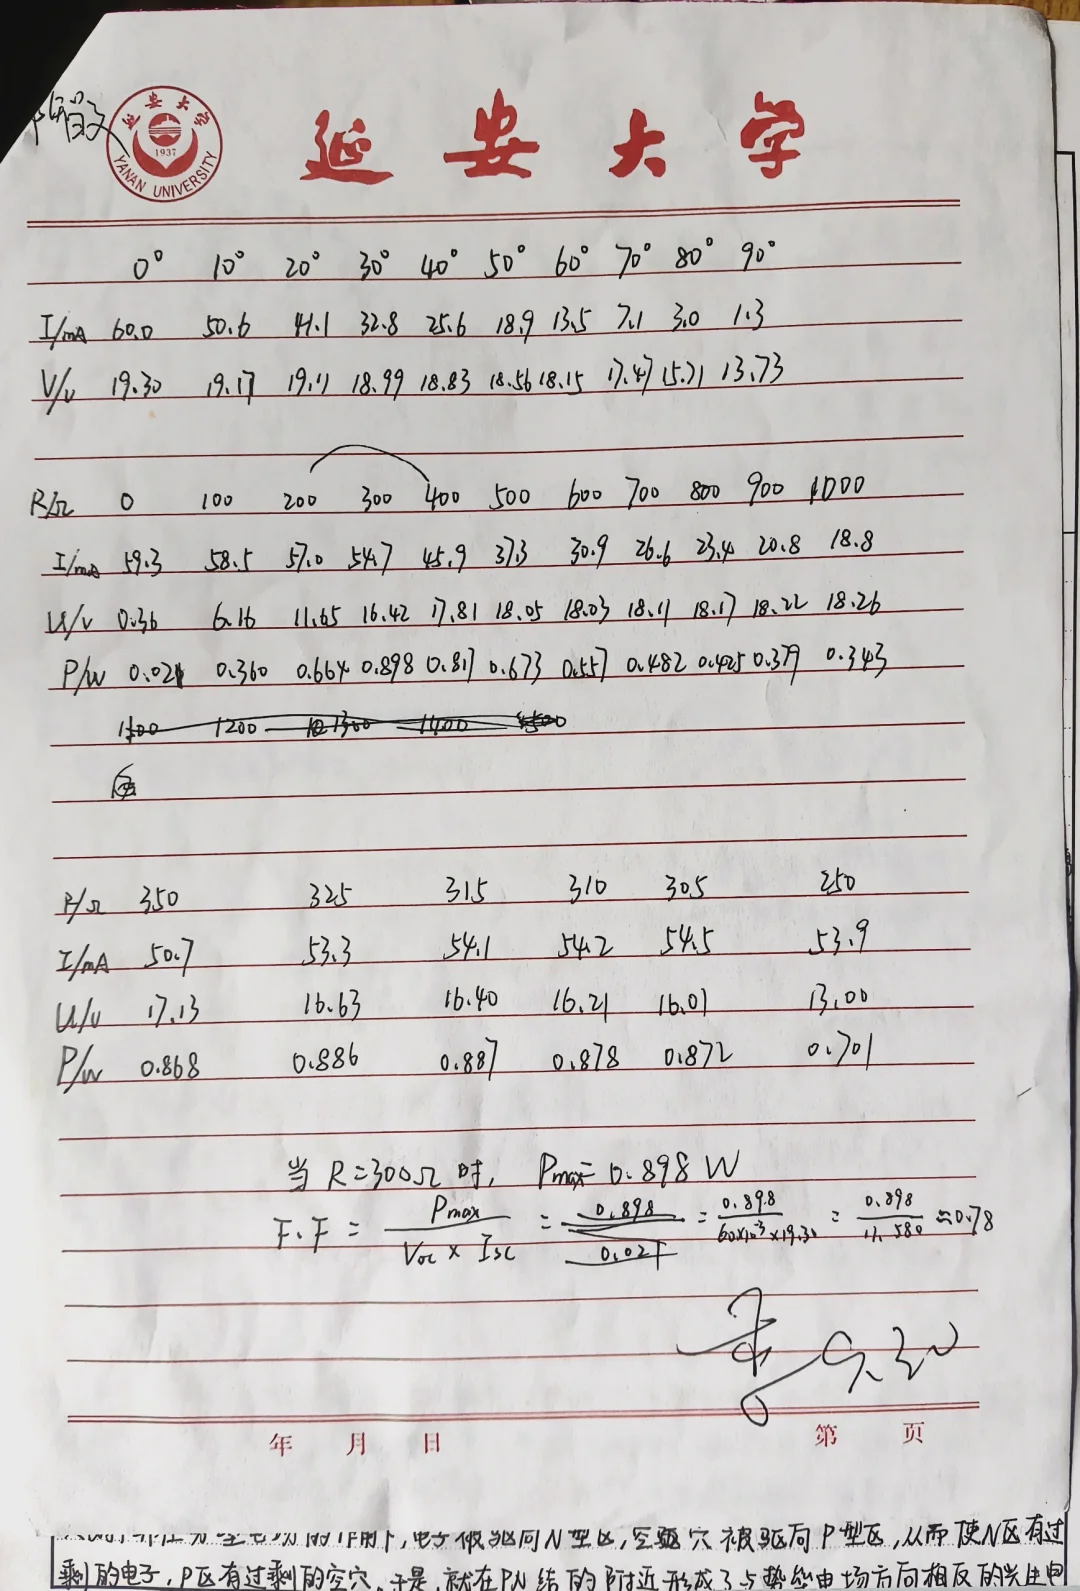 延安大学
延安大学
1937
YANAN UNIVERSITY
0° 10° 20° 30° 40° 50° 60° 70° 80° 90°
I/mA 60.0 50.6 41.1 32.8 25.6 18.9 13.5 7.1 3.0 1.3
V/v 19.30 19.17 19.11 18.99 18.83 18.56 18.15 17.47 15.71 13.73
R/Ω 0 100 200 300 400 500 600 700 800 900 1000
I/mA 59.3 58.5 57.0 54.7 45.9 37.3 30.9 26.6 23.4 20.8 18.8
U/v 0.36 6.16 11.65 16.42 17.81 18.05 18.03 18.11 18.17 18.22 18.26
P/W 0.021 0.360 0.664 0.898 0.817 0.673 0.557 0.482 0.425 0.379 0.343
1200 1300 1400
R/Ω 350 325 315 310 305 250
I/mA 50.7 53.3 54.1 54.2 54.5 53.9
U/v 17.13 16.63 16.40 16.21 16.01 13.00
P/W 0.868 0.886 0.887 0.878 0.872 0.701
当 R=300Ω 时, Pmax= 0.898 W
F.F = Pmax / Voc × Isc = 0.898 / 0.021 = 0.898 / 60×10⁻³×19.30 = 0.898 / 11.580 ≈0.78
9.30
年 月 日 第 页
的作用下,电子被驱向N型区,空穴被驱向P型区,从而使N区有过
剩的电子,P区有过剩的空穴,于是,就在PN结的附近形成了与势垒电场方向相反的光生电